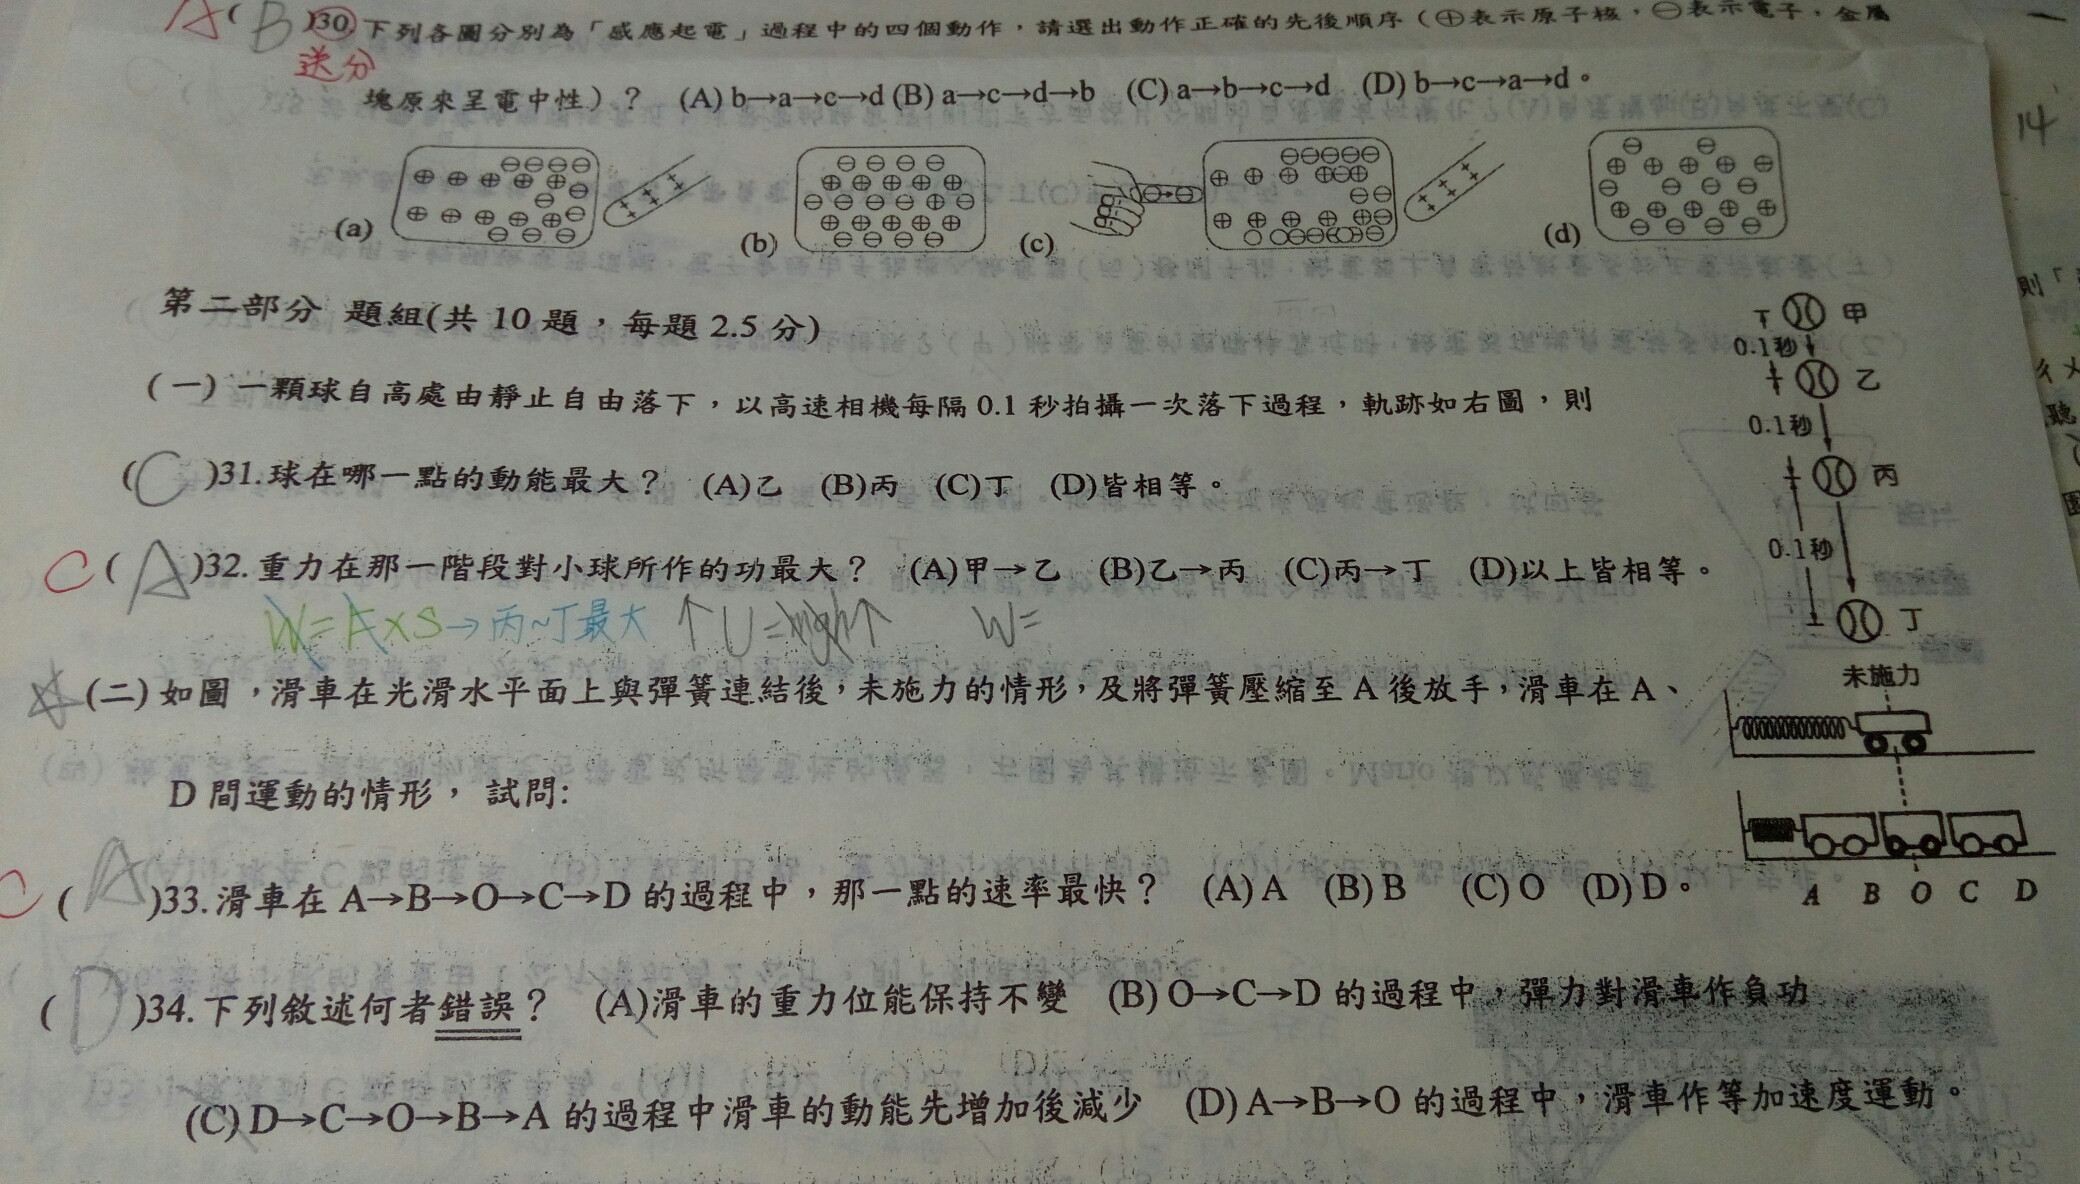 A ( B )30 下列各圖分別為「感應起電」過程中的四個動作，請選出動作正確的先後順序（⊕表示原子核，⊖表示電子，金屬
送分
塊原來呈電中性）？ (A) b→a→c→d (B) a→c→d→b (C) a→b→c→d (D) b→c→a→d。
14
(a) (b) (c) (d)
則「
第二部分 題組(共 10 題，每題 2.5 分)
甲
0.1秒
乙
(一) 一顆球自高處由靜止自由落下，以高速相機每隔 0.1 秒拍攝一次落下過程，軌跡如右圖，則
0.1秒
( C )31.球在哪一點的動能最大？ (A)乙 (B)丙 (C)丁 (D)皆相等。
丙
0.1秒
C ( A )32.重力在那一階段對小球所作的功最大？ (A)甲→乙 (B)乙→丙 (C)丙→丁 (D)以上皆相等。
丁
W=A×S→丙~丁最大 ↑U=mgh↑ W=
未施力
(二) 如圖，滑車在光滑水平面上與彈簧連結後，未施力的情形，及將彈簧壓縮至 A 後放手，滑車在 A、
D 間運動的情形， 試問:
A B O C D
C ( A )33.滑車在 A→B→O→C→D 的過程中，那一點的速率最快？ (A) A (B) B (C) O (D) D。
( D )34.下列敘述何者錯誤？ (A)滑車的重力位能保持不變 (B) O→C→D 的過程中，彈力對滑車作負功
(C) D→C→O→B→A 的過程中滑車的動能先增加後減少 (D) A→B→O 的過程中，滑車作等加速度運動。